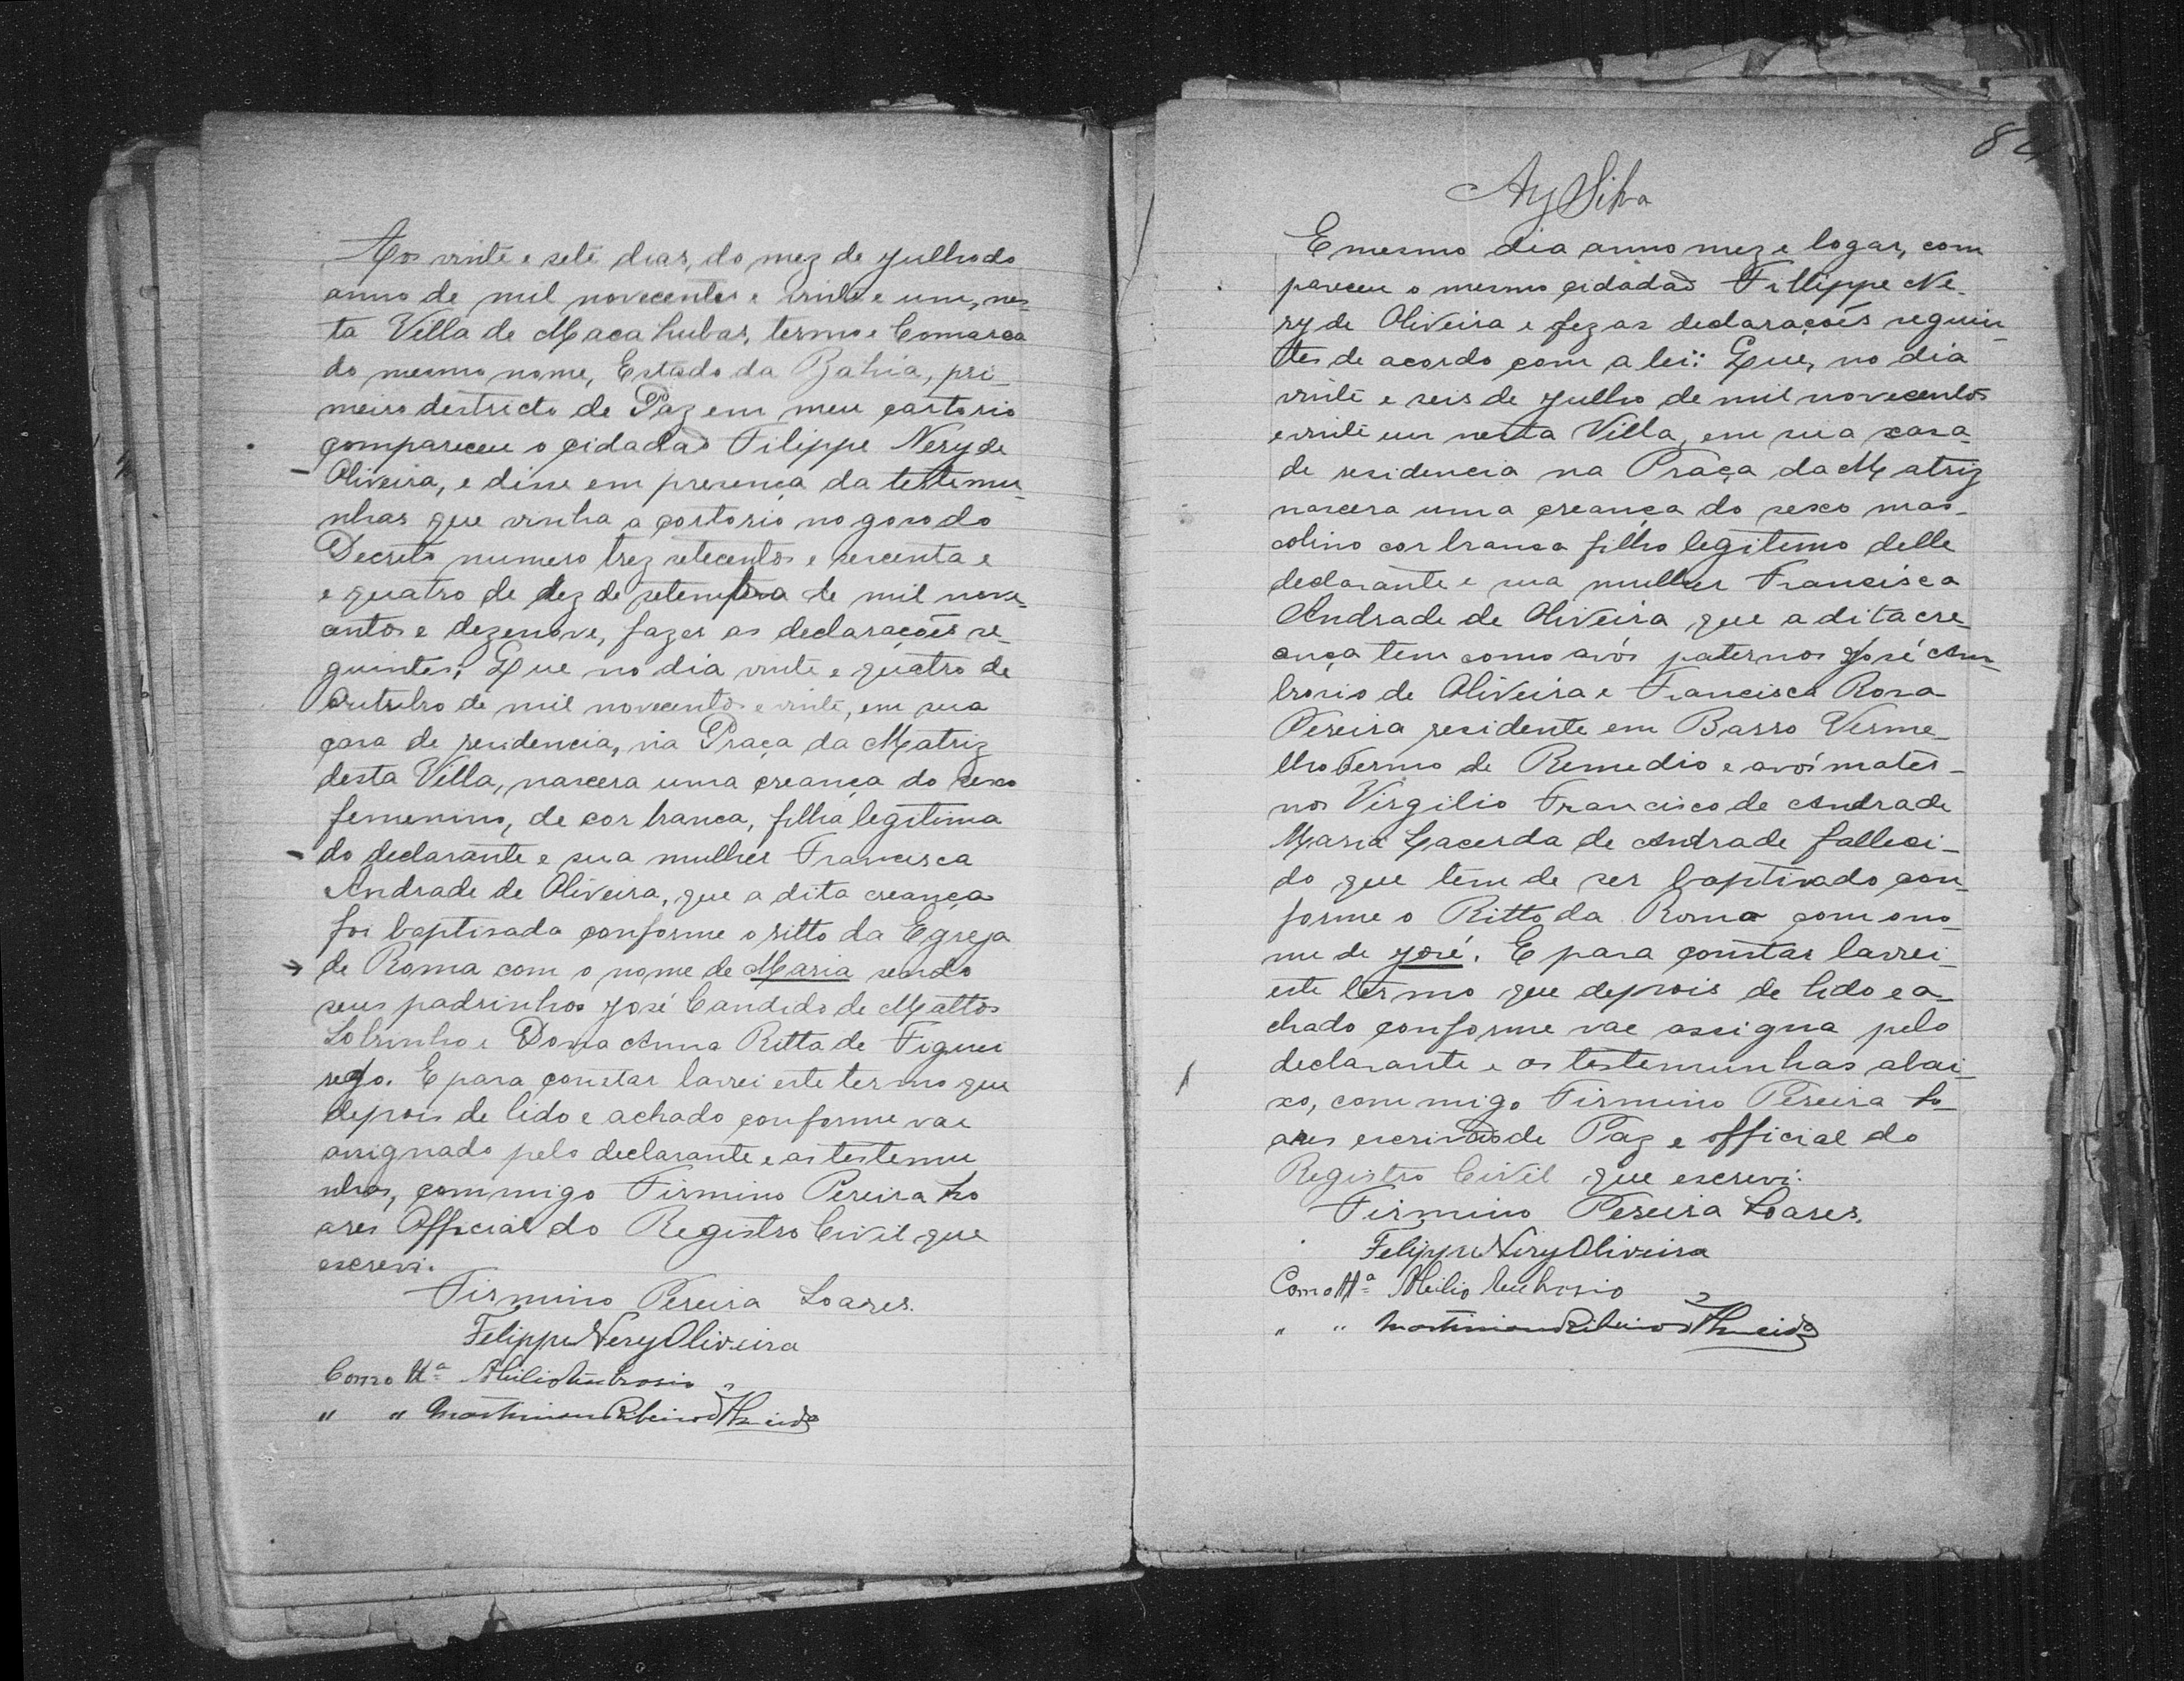 Aos vinte e sete dias, do mez de julho do
anno de mil novecentos e vinte e um, nes-
ta Villa de Macahubas, termo e Comarca
do mesmo nome, Estado da Bahia, pri-
meiro destricto de Paz em meu cartorio
compareceu o cidadaõ Filippe Nery de
Oliveira, e disse em presença da testemu-
nhas que vinha a cartorio no goso do
Decreto numero trez setecentos e secenta e
e quatro de dez de setembro de mil nove-
centos e dezenove, fazer as declarações se-
guintes; Que no dia vinte e quatro de
Outubro de mil novecentos e vinte, em sua
casa de residencia, na Praça da Matriz
desta Villa, nascera uma creança do sexo
femenino, de cor branca, filha legitima
do declarante e sua mulher Francisca
Andrade de Oliveira, que a dita creança
foi baptisada conforme o ritto da Egreja
de Roma com o nome de Maria sendo
seus padrinhos José Candido de Mattos
Sobrinho e Dona Anna Ritta de Figuei
redo. E para constar lavrei este termo que
depois de lido e achado conforme vae
assignado pelo declarante e as testemu
nhas, commigo Firmino Pereira So
ares Official do Registro Civil que
escrevi.
Firmino Pereira Soares.
Felippe Nery Oliveira
Como tta Ambrosio
" " Martiniano Ribeiro d'Almeida
84
Ary Silva
E mesmo dia anno mez e logar, com
pareceu o mesmo cidadaõ Fillippe Ne-
ry de Oliveira e fez as declarações seguin-
tes de acordo com a lei: Que, no dia
vinte e seis de julho de mil novecentos
e vinte um nesta Villa, em sua casa
de residencia na Praça da Matriz
nascera uma creança do sexo mas-
colino cor branca filho legitimo delle
declarante e sua mulher Francisca
Andrade de Oliveira que a dita cre-
ança tem como avós paternos José Am-
brosio de Oliveira e Francisca Rosa
Pereira residente em Barro Verme-
lho termo de Remedio e avós mater-
nos Virgilio Francisco de Andrade
Maria Lacerda de Andrade falleci-
do que tem de ser baptisado con-
forme o Ritto da Roma com o no-
me de José. E para constar lavrei
este termo que depois de lido e a-
chado conforme vae assigna pelo
declarante e as testemunhas abai-
xo, commigo Firmino Pereira So-
ares escrivaõ de Paz e official do
Registro Civil que escrevi.
Firmino Pereira Soares.
Felippe Nery Oliveira
Como tta Ambrosio
" " Martiniano Ribeiro d'Almeida